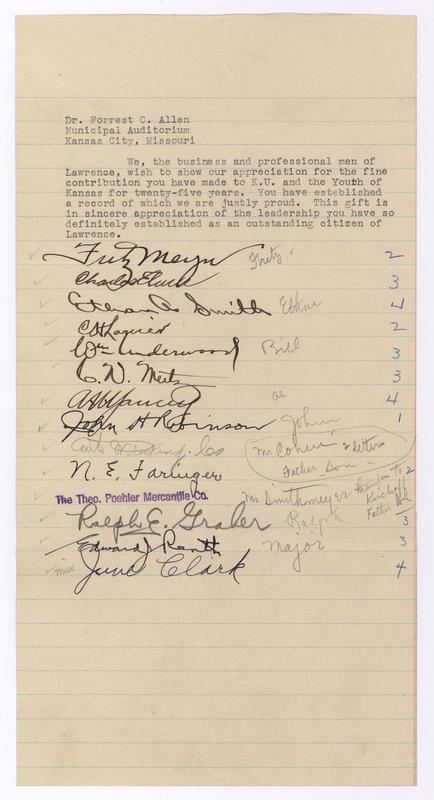 Dr. Forrest C. Allen
Municipal Auditorium
Kansas City, Missouri
We, the business and professional men of
Lawrence, wish to show our appreciation for the fine
contribution you have made to K.U. and the Youth of
Kansas for twenty-five years. You have established
a record of which we are justly proud. This gift is
in sincere appreciation of the leadership you have so
definitely established as an outstanding citizen of
Lawrence.
Fritz 2
Charles 3
Smith 4
C H Lanier 2
Wm Underwood Bill 3
C. W. 3
4
John H Robinson John 1
Co "Mr Cohen" 2 letters
Father Son
N. E. Faringer 2
The Theo. Poehler Mercantile Co. Mr Smithmeyer
Father
Ralph E. Graber Ralph 3
Edward J Major 3
Miss June Clark 4